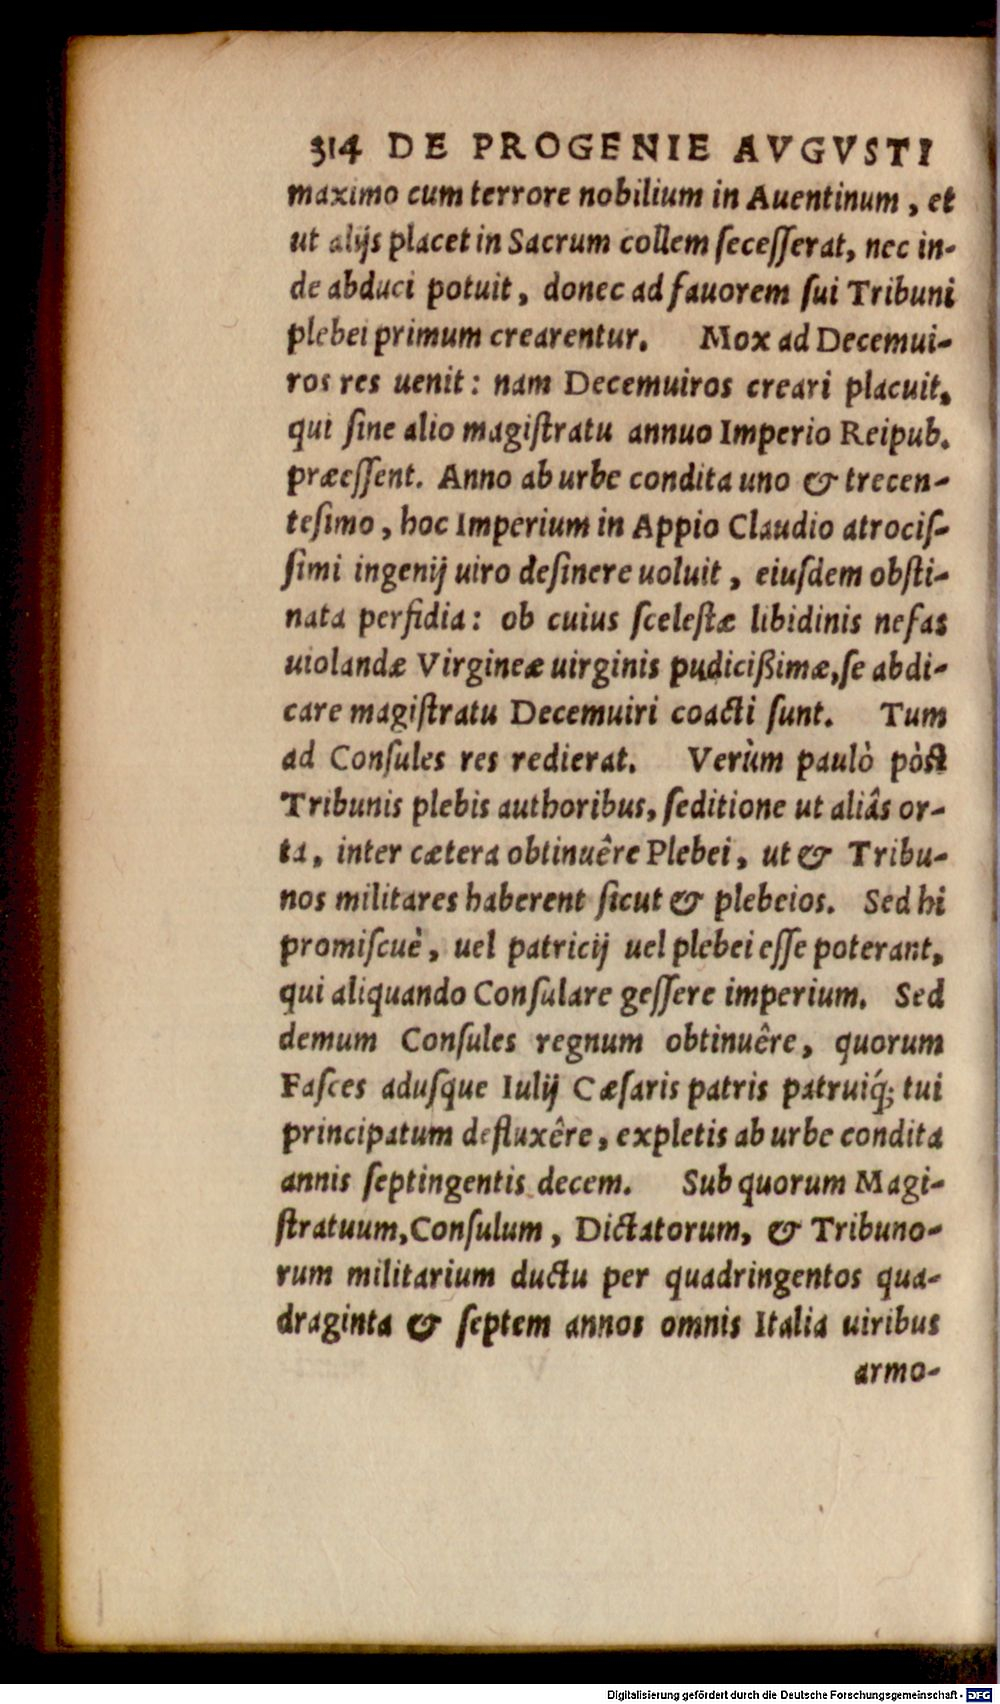 314 DE PROGENIE AVGVSTI
maximo cum terrore nobilium in Auentinum, et
ut alijs placet in Sacrum collem ſeceſſerat, nec in-
de abduci potuit, donec ad fauorem ſui Tribuni
plebei primum crearentur. Mox ad Decemui-
ros res uenit: nam Decemuiros creari placuit,
qui ſine alio magiſtratu annuo Imperio Reipub.
præeſſent. Anno ab urbe condita uno & trecen-
teſimo, hoc Imperium in Appio Claudio atrociſ-
ſimi ingenij uiro deſinere uoluit, eiuſdem obſti-
nata perfidia: ob cuius ſceleſtæ libidinis nefas
uiolandæ Virgineæ uirginis pudicißimæ, ſe abdi-
care magiſtratu Decemuiri coacti ſunt. Tum
ad Conſules res redierat. Verùm paulò pòſt
Tribunis plebis authoribus, ſeditione ut aliâs or-
ta, inter cætera obtinuêre Plebei, ut & Tribu-
nos militares haberent ſicut & plebeios. Sed hi
promiſcuè, uel patricij uel plebei eſſe poterant,
qui aliquando Conſulare geſſere imperium. Sed
demum Conſules regnum obtinuêre, quorum
Faſces aduſque Iulij Cæſaris patris patruiq́; tui
principatum defluxêre, expletis ab urbe condita
annis ſeptingentis decem. Sub quorum Magi-
ſtratuum, Conſulum, Dictatorum, & Tribuno-
rum militarium ductu per quadringentos qua-
draginta & ſeptem annos omnis Italia uiribus
armo-
Digitalisierung gefördert durch die Deutsche Forschungsgemeinschaft - DFG